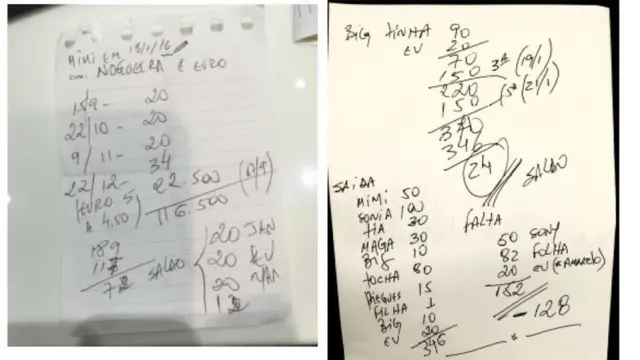 MIMI EM 18/1/16
COM NOGUEIRA E EURO
15/9 - 20
22/10 - 20
9/11 - 20
34
22/12 - 22.500 (17/9)
(EURO 5
A 4,50) 116.500
189
SALDO
20 JAN
20 FEV
20 MAR
BIG TINHA 90
EU 20
70
150 3ª (19/1)
220
150 5ª (21/1)
370
346
24 SALDO
SAIDA
MIMI 50
SONIA 100
TIA 30
MAGA 30
BIG 10
TOCHA 80
DIEGUES 15
FALHA 1
BIG 10
EU 20
346
FALTA
50 SONY
82 FOLHA
20 EU (AMARELO)
152
- 128